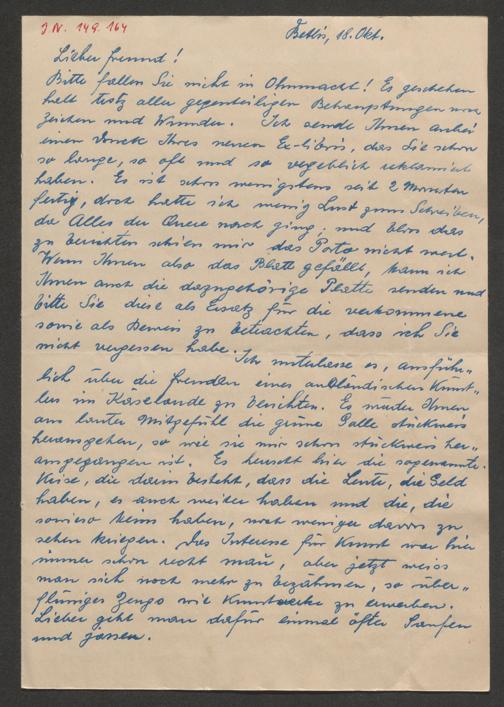 J.N. 149.164
Betlis, 18. Okt.
Lieber Freund!
Bitte fallen Sie nicht in Ohnmacht! Es geschehen
halt trotz aller gegenteiligen Behauptungen noch
Zeichen und Wunder. Ich sende Ihnen anbei
einen Druck Ihres neuen Ex-libris, das Sie schon
so lange, so oft und so vergeblich reklamiert
haben. Es ist schon wenigstens seit 2 Monaten
fertig, doch hatte ich wenig Lust zum Schreiben,
da Alles der Quere nach ging, und blos das
zu berichten schien mir das Porto nicht wert.
Wenn Ihnen also das Blatt gefällt, kann ich
Ihnen auch die dazugehörige Platte senden und
bitte Sie diese als Ersatz für die verkommene
sowie als Beweis zu betrachten, dass ich Sie
nicht vergessen habe. Ich unterlasse es, ausführ„
lich über die Freuden eines ausländischen Künst„
lers in Käselande zu berichten. Es würde Ihnen
aus lauter Mitgefühl die grüne Galle stückweis
herausgehen, so wie sie mir schon stückweis her„
ausgegangen ist. Es herrscht hier die sogenannte
Krise, die darin besteht, dass die Leute, die Geld
haben, es auch weiter haben und die, die
sowieso keins haben, noch weniger davon zu
sehen kriegen. Das Interesse für Kunst war hier
immer schon recht mau, aber jetzt weiss
man sich noch mehr zu bezähmen, so über„
flüssiges Zeugs wie Kunstwerke zu erwerben.
Lieber geht man dafür einmal öfter Saufen
und jassen.